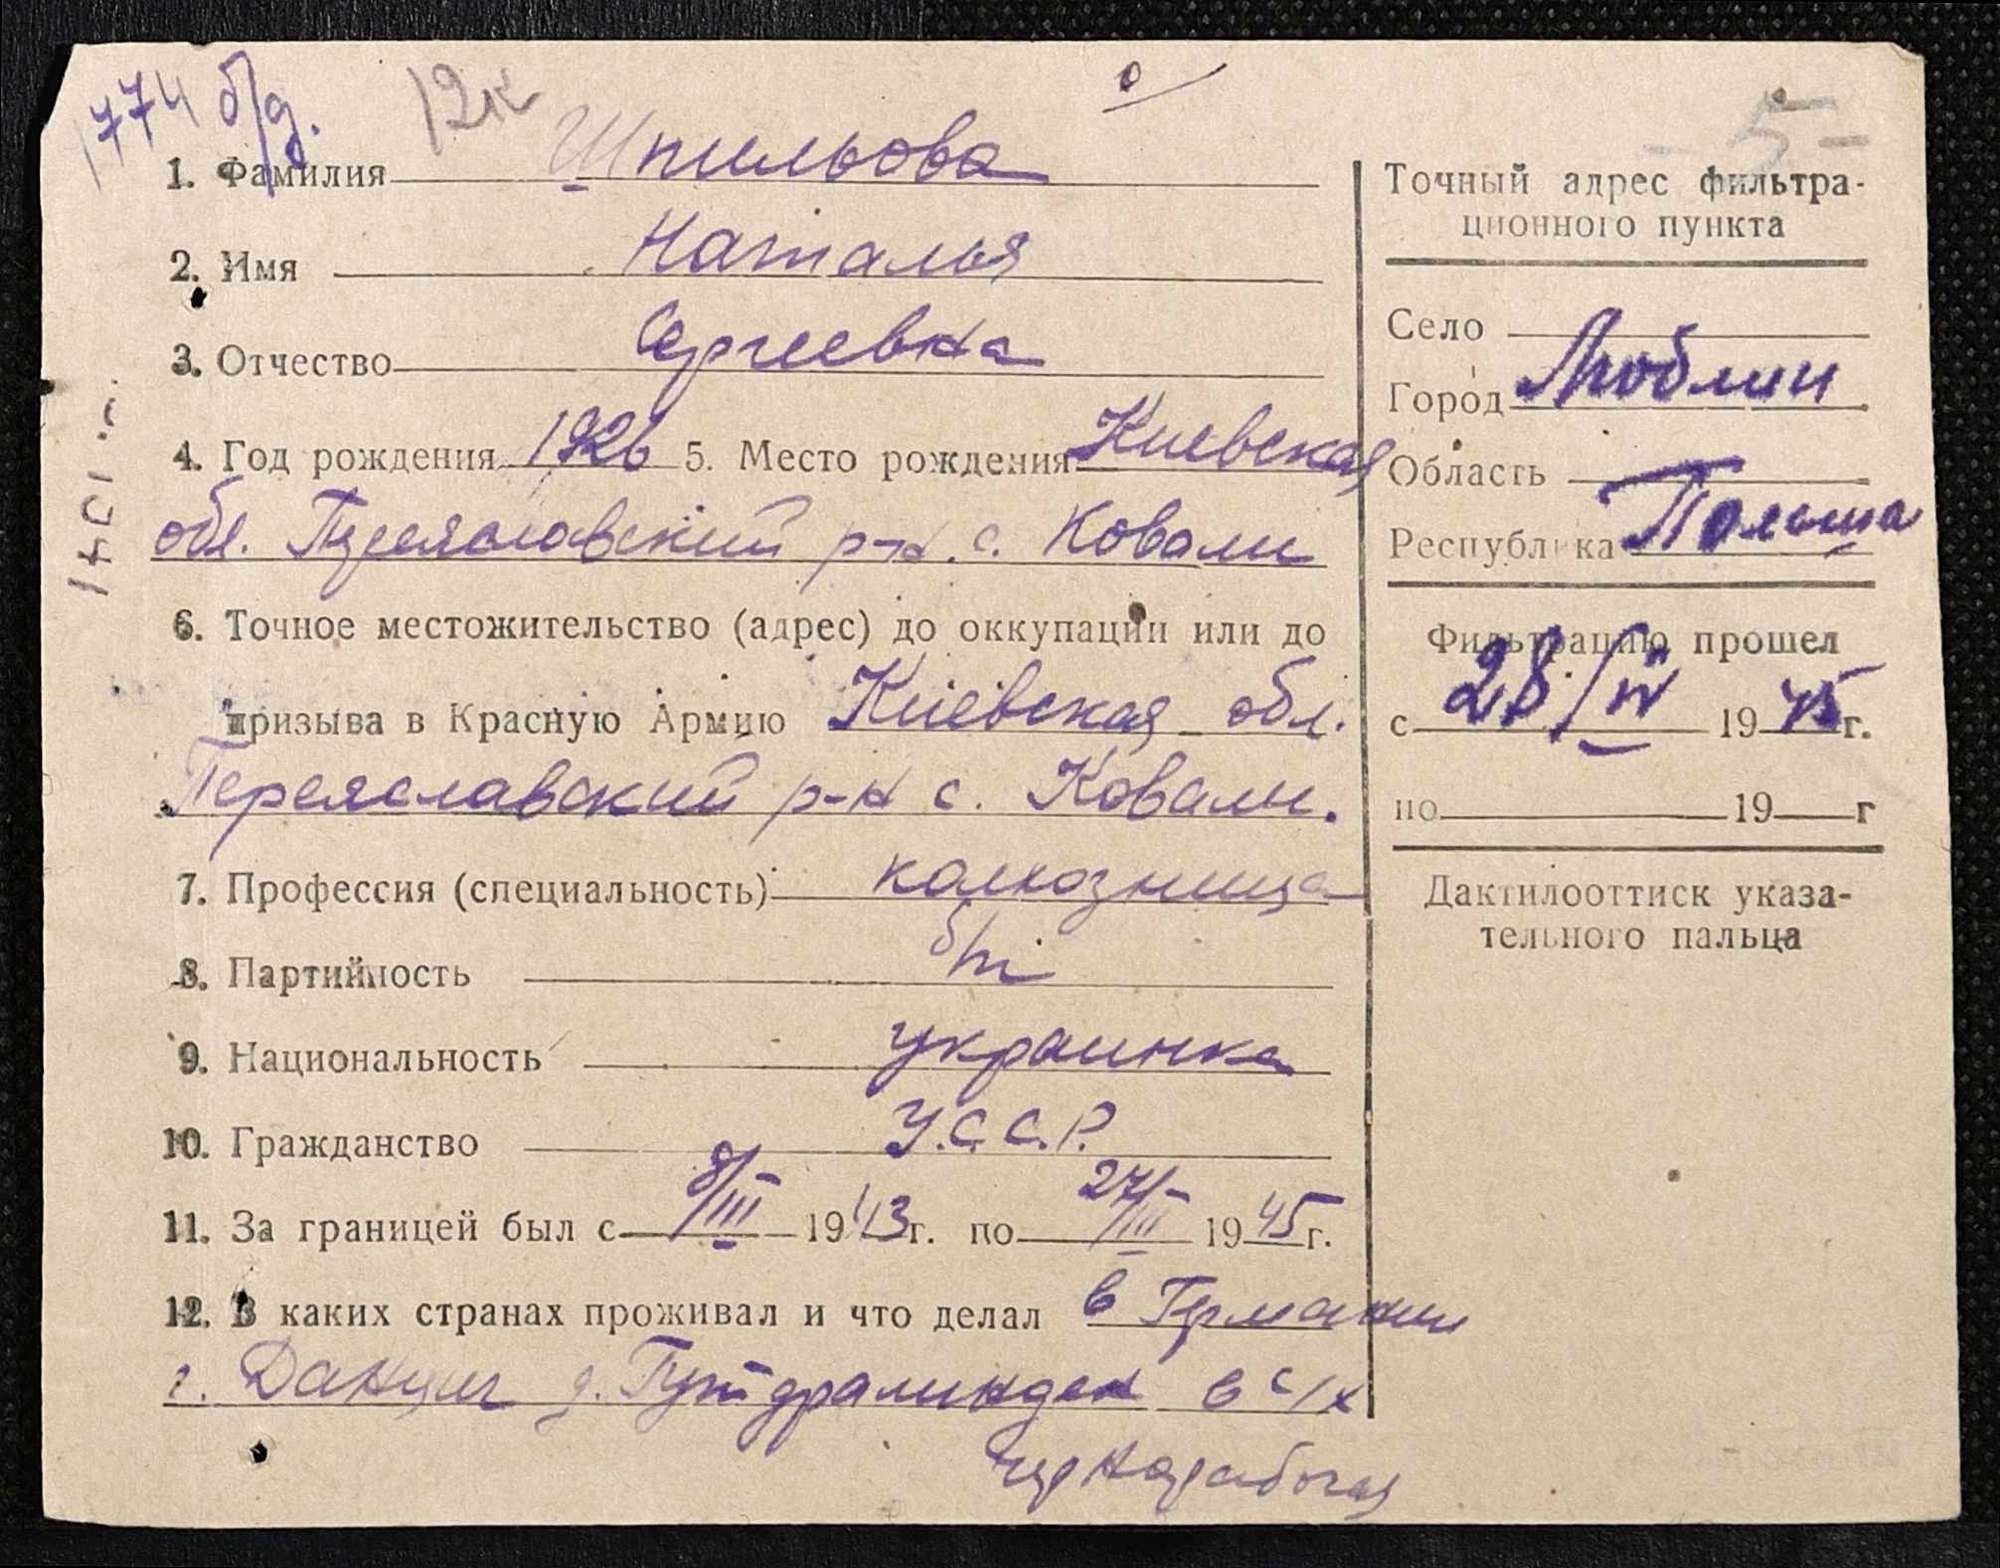 1774 б/д. 12к
1. Фамилия Шпильова
2. Имя Наталья
3. Отчество Сергеевна
4. Год рождения 1926 5. Место рождения Киевская
обл. Переяславский р-н. с. Ковали
6. Точное местожительство (адрес) до оккупации или до
призыва в Красную Армию Киевская обл.
Переяславский р-н с. Ковали.
7. Профессия (специальность) колхозница
8. Партийность б/п
9. Национальность украинка
10. Гражданство У.С.С.Р.
11. За границей был с 8/III 1943г. по 27/III 1945г.
12. В каких странах проживал и что делал в Германии
г. Данциг д. в с/х
чернорабочая
-5-
Точный адрес фильтра-
ционного пункта
Село
Город Люблин
Область
Республика Польша
Фильтрацию прошел
с 28/IV 1945г.
по 19 г
Дактилооттиск указа-
тельного пальца